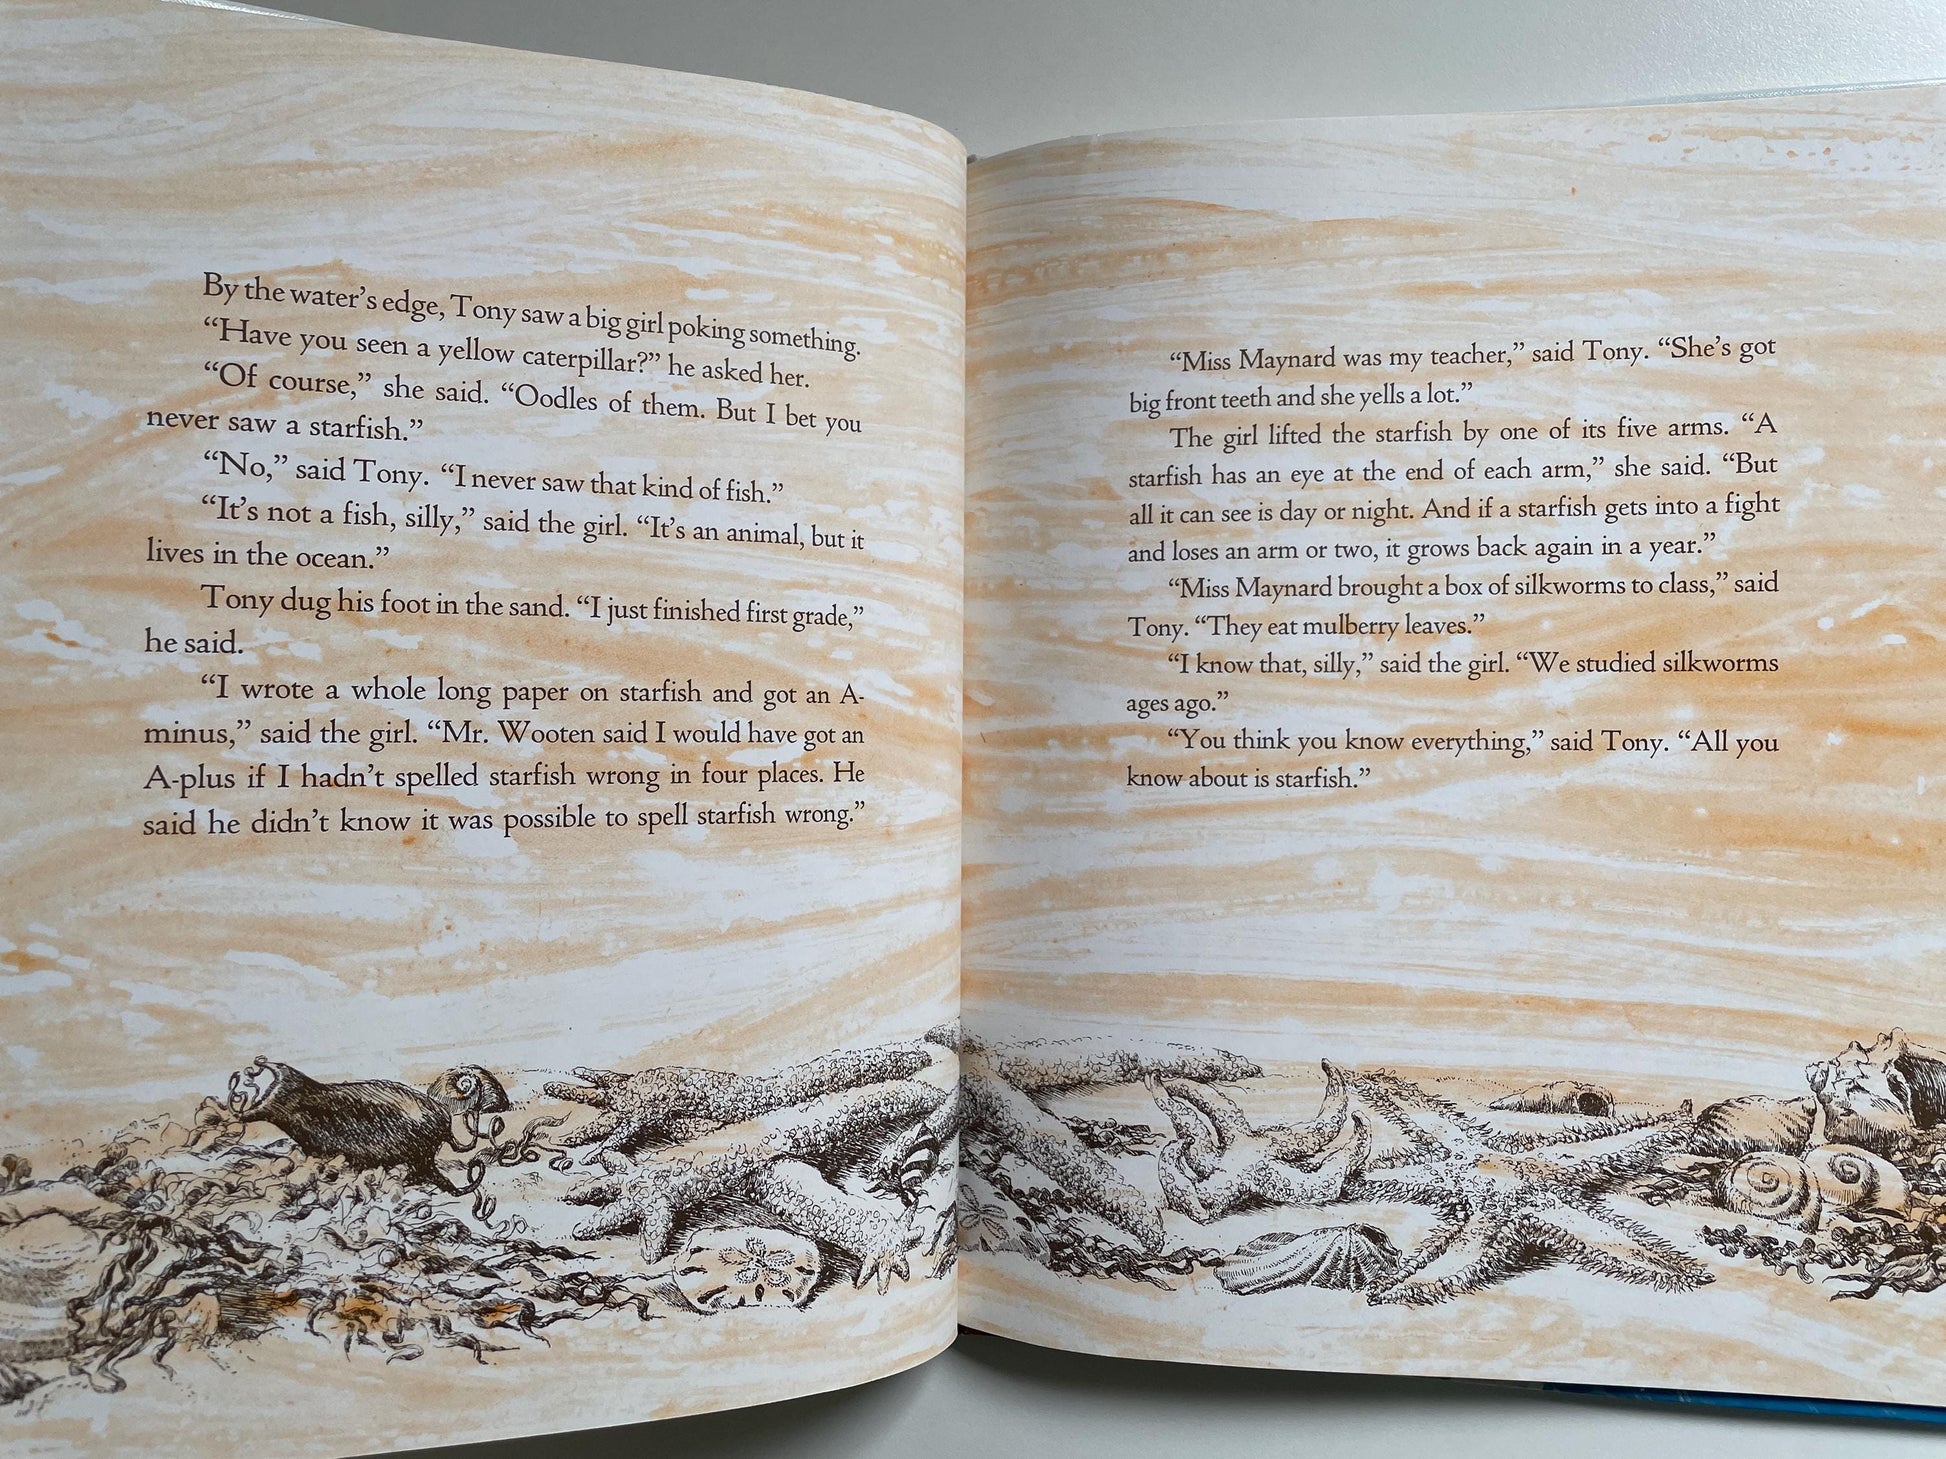 By the water's edge, Tony saw a big girl poking something.
“Have you seen a yellow caterpillar?” he asked her.
“Of course,” she said. “Oodles of them. But I bet you
never saw a starfish.”
“No,” said Tony. “I never saw that kind of fish.”
“It's not a fish, silly,” said the girl. “It's an animal, but it
lives in the ocean.”
Tony dug his foot in the sand. “I just finished first grade,”
he said.
“I wrote a whole long paper on starfish and got an A-
minus,” said the girl. “Mr. Wooten said I would have got an
A-plus if I hadn't spelled starfish wrong in four places. He
said he didn't know it was possible to spell starfish wrong.”
“Miss Maynard was my teacher,” said Tony. “She's got
big front teeth and she yells a lot.”
The girl lifted the starfish by one of its five arms. “A
starfish has an eye at the end of each arm,” she said. “But
all it can see is day or night. And if a starfish gets into a fight
and loses an arm or two, it grows back again in a year.”
“Miss Maynard brought a box of silkworms to class,” said
Tony. “They eat mulberry leaves.”
“I know that, silly,” said the girl. “We studied silkworms
ages ago.”
“You think you know everything,” said Tony. “All you
know about is starfish.”